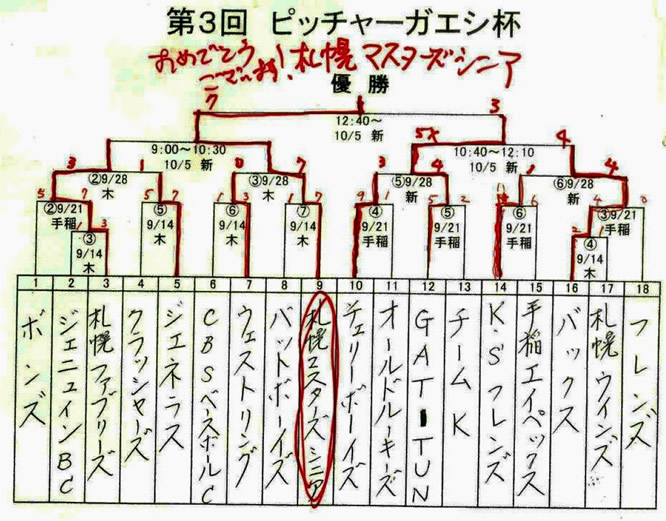 第3回 ピッチャーガエシ杯
おめでとう
ございます! 札幌マスターズシニア
優勝
7 3
12:40~
10/5 新
9:00~10:30
10/5 新
10:40~12:10
10/5 新
5x 4
3 1 0 7 3 4 1 4
②9/28
木
③9/28
木
⑤9/28
新
⑥9/28
新
5 7 5 7 1 3 1 7 9 1 5 2 11 6 4 0
②9/21
手稲
⑤
9/14
木
⑥
9/14
木
⑦
9/14
木
④
9/21
手稲
⑤
9/21
手稲
⑥
9/21
手稲
③9/21
手稲
1 3
③
9/14
木
2 1
④
9/14
木
1 2 3 4 5 6 7 8 9 10 11 12 13 14 15 16 17 18
ボンズ
ジェニュインBC
札幌ファブリーズ
クラッシャーズ
ジェネラス
CBSベースボールC
ウエストリング
バットボーイズ
札幌マスターズシニア
チェリーボーイズ
オールドルーキーズ
GATTUN
チームK
K・Sフレンズ
手稲エイペックス
バックス
札幌ウインズ
フレンズ